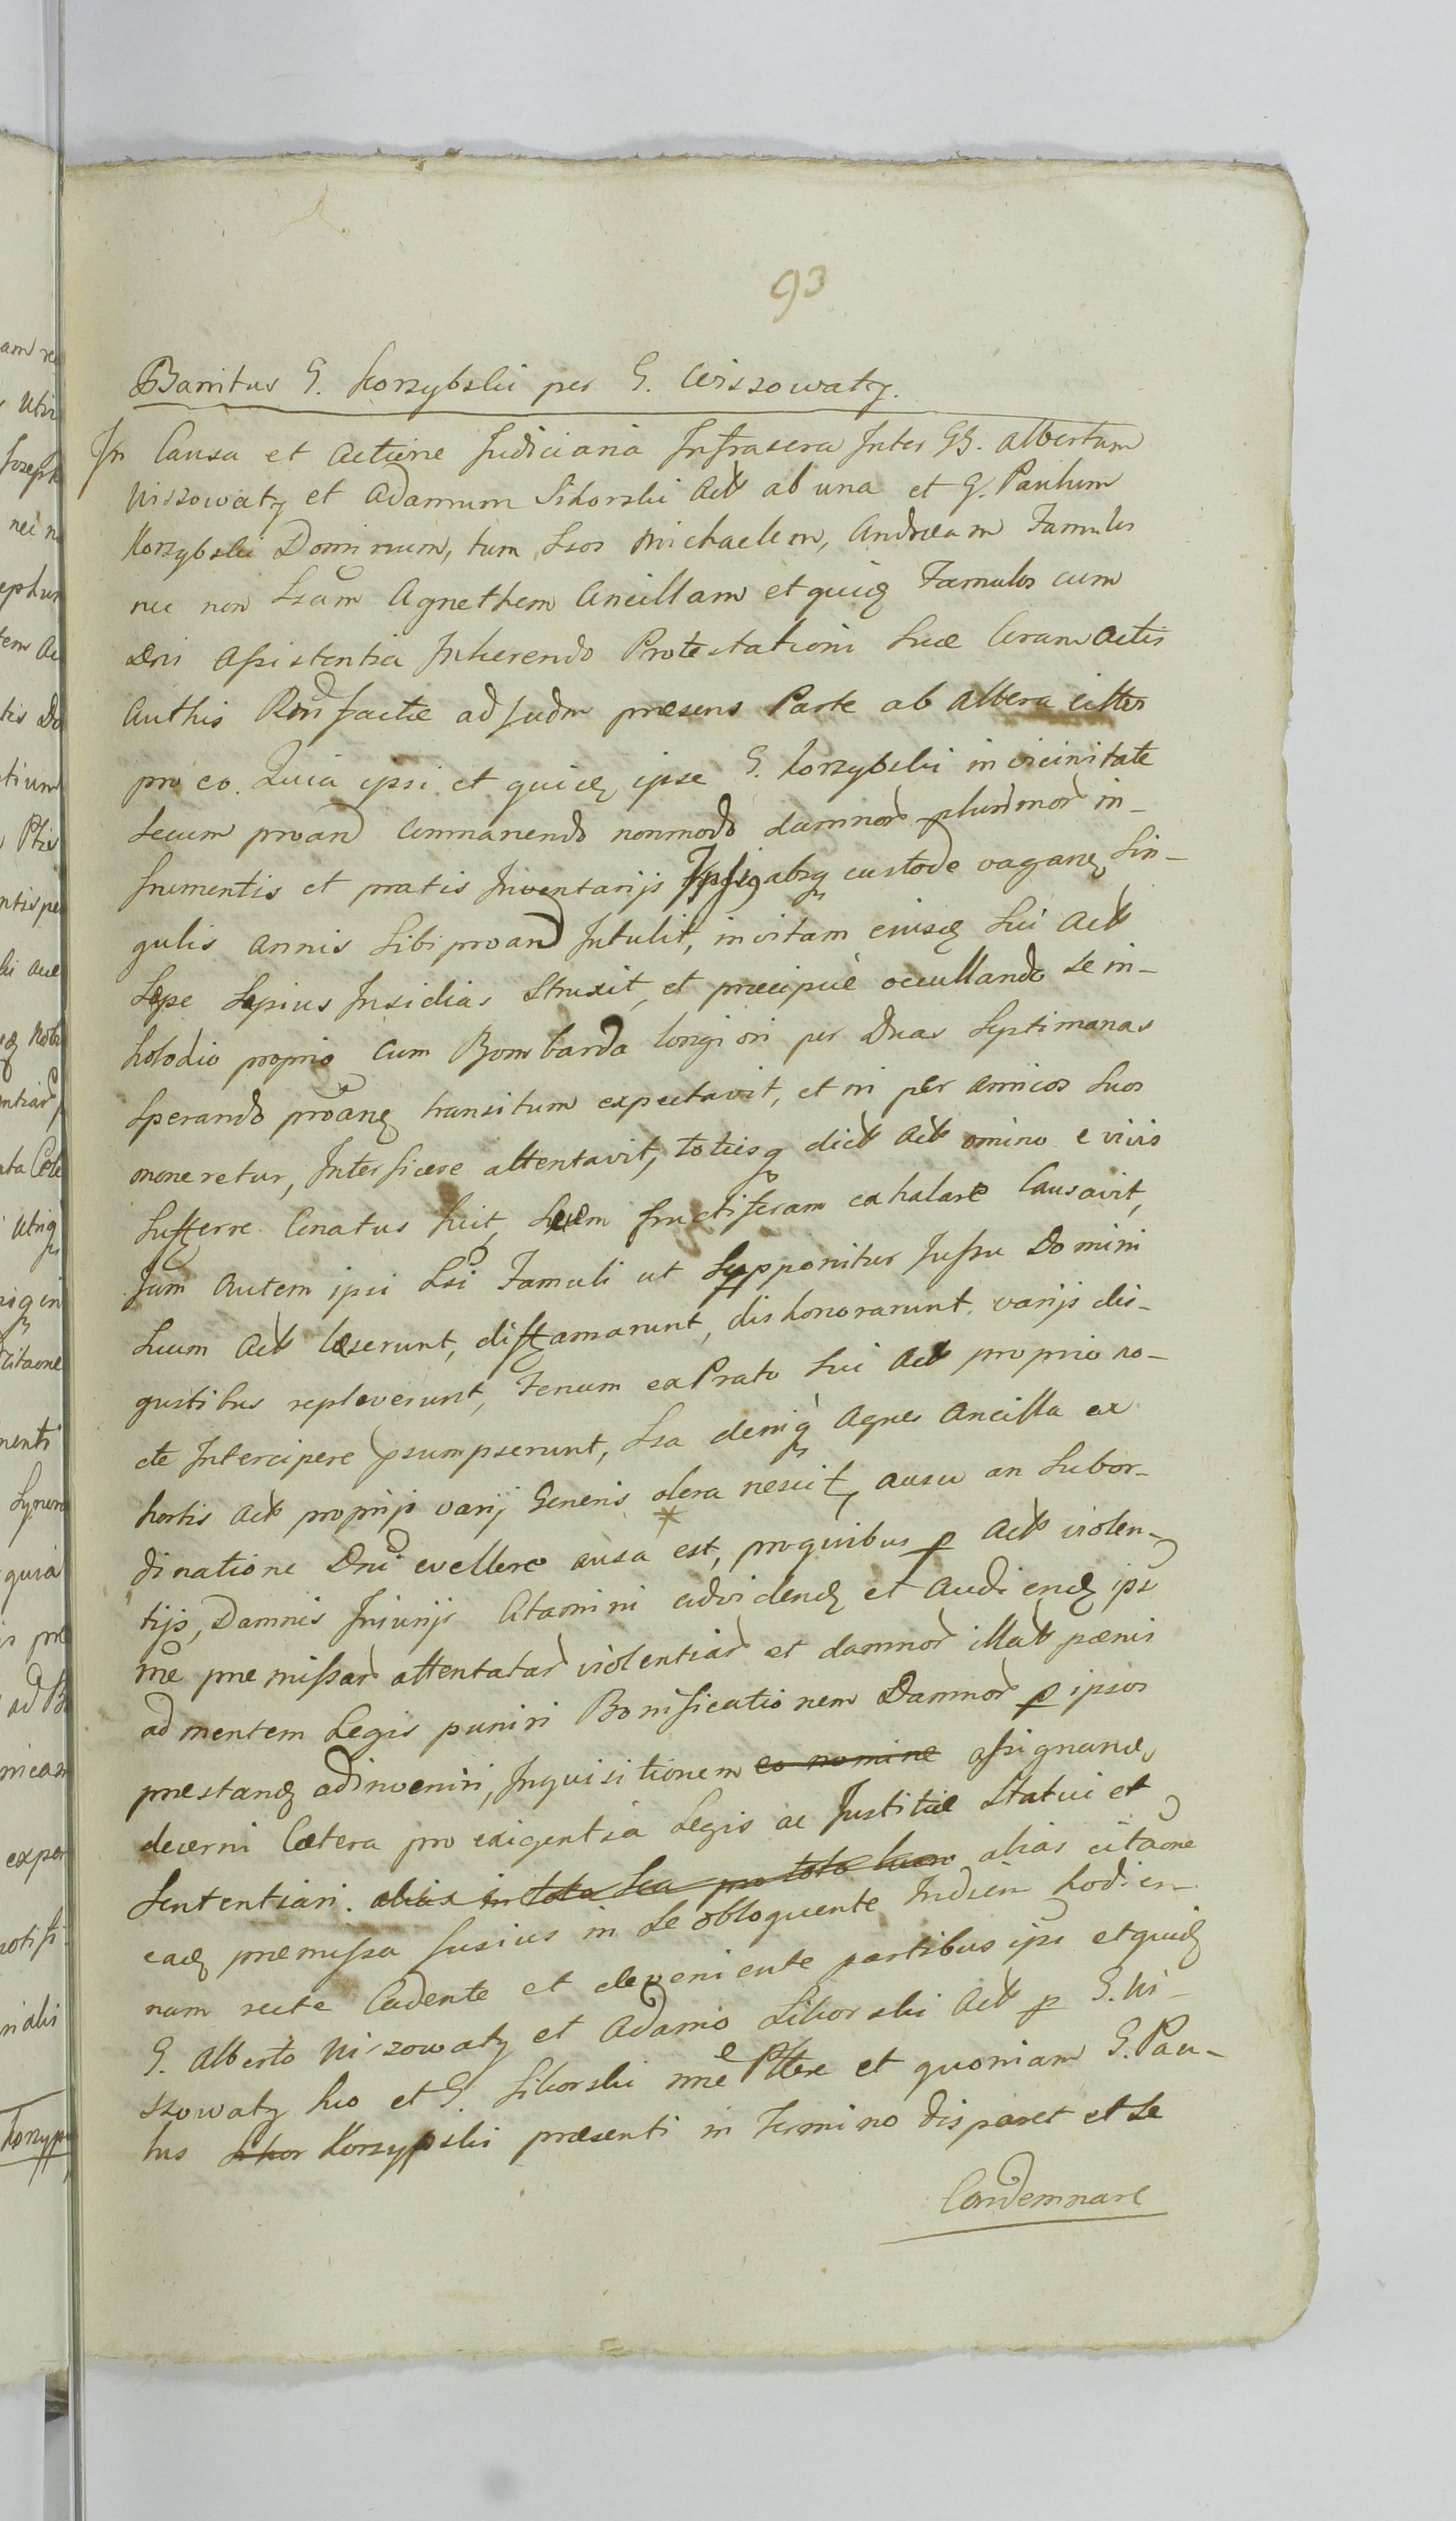 93
Bannitus G. Korzybski per G. Wiszowaty.
In Causa et Actione Judiciaria Infrascra Inter GG. Albertum
Wiszowaty et Adamum Sikorski Act ab una et G. Paulum
Korzybski Dominum, tum Lsos Michaelem, Andream Famulos
nec non Lsam Agnethem Ancillam et quidq Famulos cum
Dni Assistentia Inherendo Protestationi Suæ Coram Actis
Authis factæ ad Judm præsens Parte ab Altera cittos
pro eo. Quia ipsi et quidq ipse G. Korzybski in vicinitate
Secum proand Commanendo nonmodo damnor plurimor in-
frumentis et pratis Inventarijs absq custode vaganq Sin-
gulis annis Sibi proand Intulit, in vitam eiusq Sui Act
Sæpe Sæpius Insidias Struxit, et præcipuè occultando Se in-
holodio proprio cum Bombarda longiori per Duas Septimanas
Sperando proanq transitum expectavit, et ni per amicos Suos
moneretur, Interficere attentavit, totiesq dict Act omino e vivis
Sufferre Conatus fuit, fructiferam exhalare Causavit,
Jam Autem ipsi Lsi Famuli ut Supponitur Jussu Domini
Suum Act læserunt, diffamarunt, dishonorarunt varijs dis-
gustibus repleverunt, Fenum ex Prato Sui Act proprio ro-
te Intercipere psumpserunt, Lsa deniq Agnes Ancilla ex
hortis Act proprijs varij Generis olera nescit, ausu an Subor-
dinatione Dni evellere ausa est, proquibus p Act violen-
tijs, Damnis Iniurijs Citamini advidenq et Audienq ips
me præmissar attentatar violentiar et damnor illat pænis
ad mentem Legis puniri Bonificationem Damnor p ipsos
præstanq adinveniri, Inquisitionem eo nomine assignanq
decerni Cætera pro exigentia Legis ac Justitiæ Statui et
Sententiari. alias in toto pro toto alias citaone
eadq præmissa fusius in Se obloquente Indiem hodier-
num recte Cadente et deveniente partibus ips et quidq
G. Alberto Wiszowaty et Adamo Sikorski Act p G. Wi-
szowaty suo et G. Sikorski nne Ptte et quoniam G. Pau-
lus Korzypski præsenti in Termino disparet et Se
Condemnare